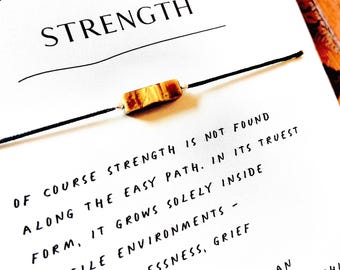 STRENGTH
OF COURSE STRENGTH IS NOT FOUND
ALONG THE EASY PATH. IN ITS TRUEST
FORM, IT GROWS SOLELY INSIDE
ENVIRONMENTS –
GRIEF